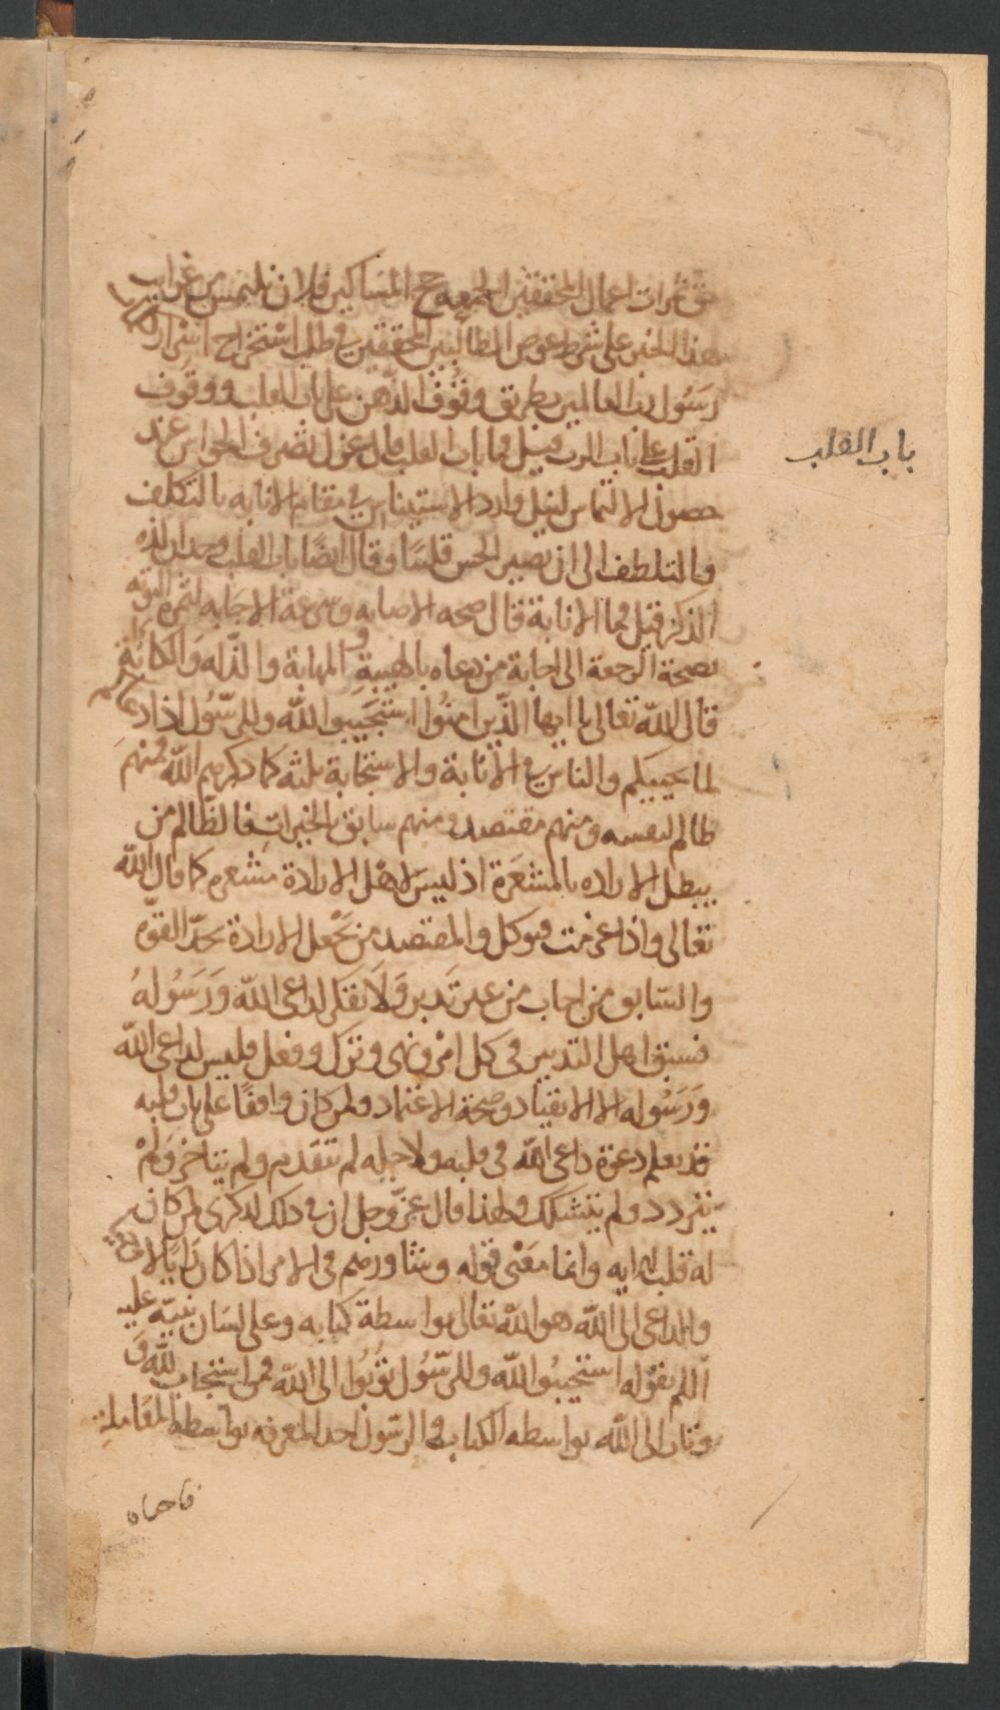 ثمرات اعمال المحققين الجمعه حج المساكين فلان نلتمس من غراب
هذا الخبر على شرط غوص الطالبين المحققين في طلب استخراج اسرار كلام
رسول رب العالمين بطريق وقوف الذهن على باب القلب ووقوف
القلب على باب الرب قيل فما باب القلب قال عزل تصرف الحواس عند
باب القلب
حصول الالتماس لنيل وارد الاستيناس في مقام الانابه بالتكلف
والتلطف الى ان يصير الحس قلبيا وقال ايضا باب القلب وجدان لذه
الذكر قيل فما الانابة قال صحه الاصابه وسرعة الاجابه لثمره التوبه
بصحة الرجعة الى اجابة من دعاه بالهيبة والمهابة والذله والكابة
قال الله تعالى يا ايها الذين امنوا استجيبوا لله وللرسول اذا دعاكم
لما يحييكم والناس في الانابة والاستجابة ثلثه كما ذكرهم الله فمنهم
ظالم لنفسه ومنهم مقتصد ومنهم سابق بالخيرات فالظالم من
يبطل الاراده بالمشعرة اذ ليس لاهل الارادة مشعرم كما قال الله
تعالى واذا عزمت فتوكل والمقتصد من يجعل الارادة بحد القوه
والسابق من اجاب من غير تدبر ولا تفكر لداعى الله ورسوله
فسبق اهل التدبير فى كل امر ونهى وترك وفعل فليس لداعى الله
ورسوله الا الانقياد وصحة الاعتماد ولمن كان واقفا على باب قلبه
قد يعلم دعوة داعى الله فى قلبه ولاجله لم يتقدم ولم يتاخر ولم
يتردد ولم يتشكك ولهذا قال عز وجل ان فى ذلك لذكرى لمن كان
له قلب الايه وانما معنى قوله وشاورهم فى الامر اذا كان رايا لا
والداعى الى الله هو الله تعالى بواسطة كتابه وعلى لسان نبيه عليه
اللم بقوله استجيبوا لله وللرسول توبوا الى الله فمن استجاب لله و
وتاب الى الله بواسطه الكتاب والرسول احد المعرفه بواسطة المعامله
فاحياه